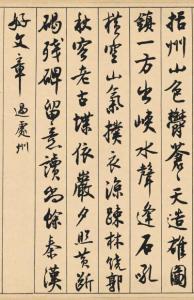 括州山色鬱蒼〻天造雄圖
鎮一方出峽水聲逢石吼
橫空山氣撲衣涼疎林饒郭
秋容老古堞依巖夕照黃斷
碣殘碑留意讀尚餘秦漢
好文章 過處州